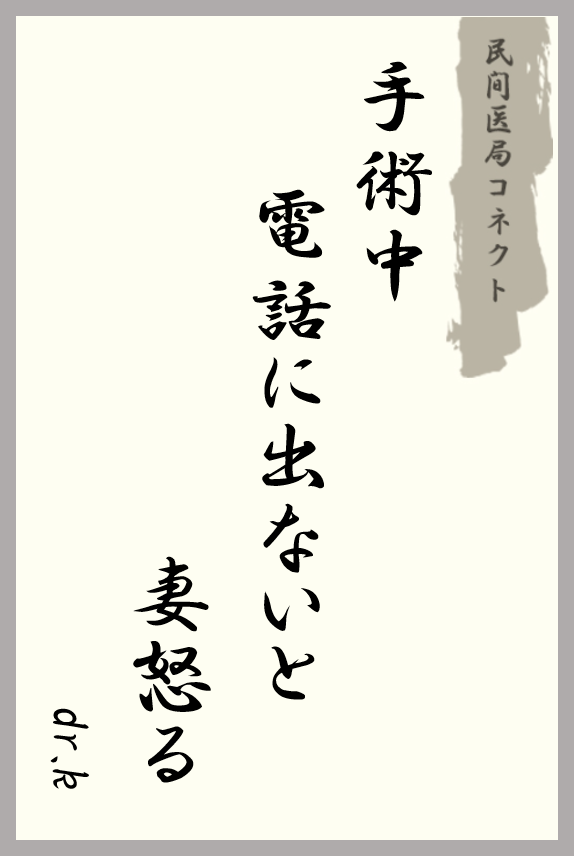 民間医局コネクト
手術中
電話に出ないと
妻怒る
dr.k